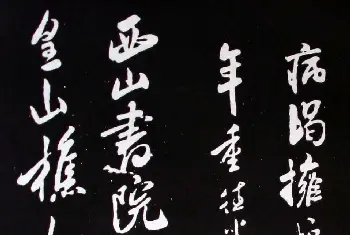 病渴擁
年重徒
西山書院
皇山樵